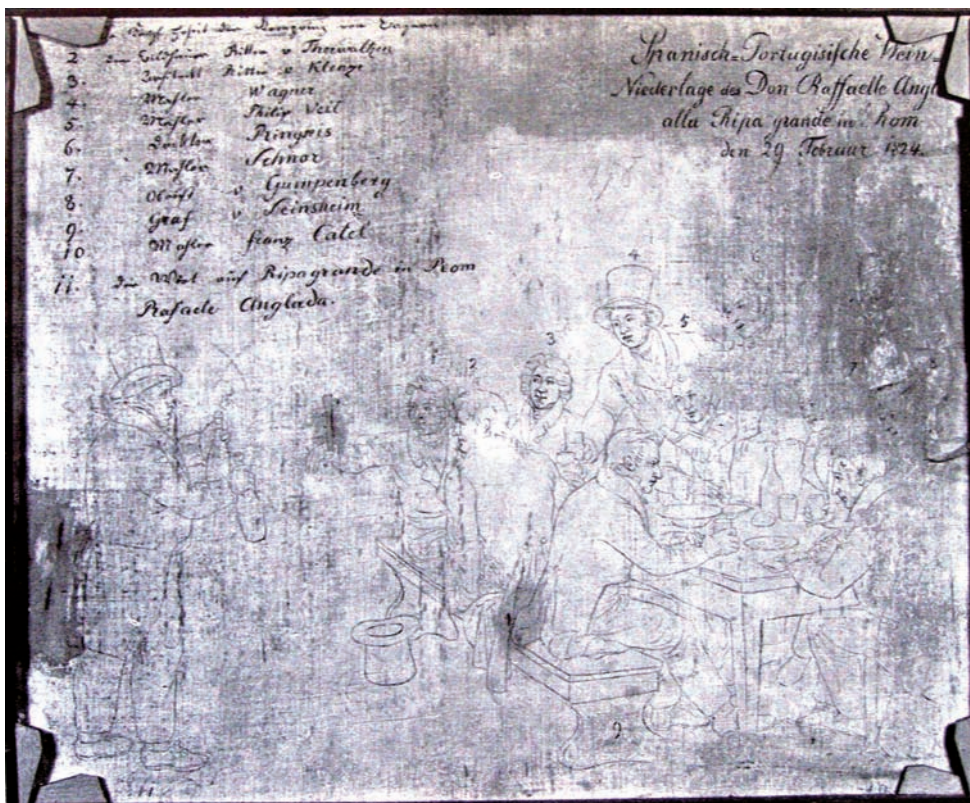 Hoheit der Kronprinz von Bayern
2. Ritter v Thorwaldsen
3. Ritter v Klenze
4. Mahler Wagner
5. Mahler Philip Veit
6. Docktor Ringseis
7. Mahler Schnor
8. Obrist v Gumpenberg
9. Graf v Seinsheim
10 Mahler franz Catel
11. der Wirt auf Ripagrande in Rom
Rafaele Anglada.
Spanisch=Portugisische Wein=
Niederlage des Don Raffaelle Angl
alla Ripa grande in Rom
den 29 Februar 1824.
1
2
3
4
5
6
7
8
9